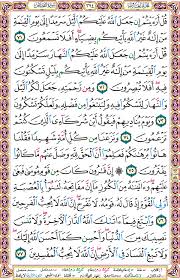 قُلْ أَرَءَيْتُمْ إِن جَعَلَ ٱللَّهُ عَلَيْكُمُ ٱلَّيْلَ سَرْمَدًا إِلَىٰ يَوْمِ ٱلْقِيَٰمَةِ
مَنْ إِلَٰهٌ غَيْرُ ٱللَّهِ يَأْتِيكُم بِضِيَآءٍ أَفَلَا تَسْمَعُونَ ٧١
قُلْ أَرَءَيْتُمْ إِن جَعَلَ ٱللَّهُ عَلَيْكُمُ ٱلنَّهَارَ سَرْمَدًا إِلَىٰ
يَوْمِ ٱلْقِيَٰمَةِ مَنْ إِلَٰهٌ غَيْرُ ٱللَّهِ يَأْتِيكُم بِلَيْلٍ تَسْكُنُونَ
فِيهِ أَفَلَا تُبْصِرُونَ ٧٢ وَمِن رَّحْمَتِهِۦ جَعَلَ لَكُمُ ٱلَّيْلَ
وَٱلنَّهَارَ لِتَسْكُنُوا۟ فِيهِ وَلِتَبْتَغُوا۟ مِن فَضْلِهِۦ وَلَعَلَّكُمْ تَشْكُرُونَ
٧٣ وَيَوْمَ يُنَادِيهِمْ فَيَقُولُ أَيْنَ شُرَكَآءِىَ ٱلَّذِينَ كُنتُمْ
تَزْعُمُونَ ٧٤ وَنَزَعْنَا مِن كُلِّ أُمَّةٍ شَهِيدًا فَقُلْنَا
هَاتُوا۟ بُرْهَٰنَكُمْ فَعَلِمُوٓا۟ أَنَّ ٱلْحَقَّ لِلَّهِ وَضَلَّ عَنْهُم مَّا كَانُوا۟
يَفْتَرُونَ ٧٥ إِنَّ قَٰرُونَ كَانَ مِن قَوْمِ مُوسَىٰ فَبَغَىٰ عَلَيْهِمْ
وَءَاتَيْنَٰهُ مِنَ ٱلْكُنُوزِ مَآ إِنَّ مَفَاتِحَهُۥ لَتَنُوٓأُ بِٱلْعُصْبَةِ
أُو۟لِى ٱلْقُوَّةِ إِذْ قَالَ لَهُۥ قَوْمُهُۥ لَا تَفْرَحْ إِنَّ ٱللَّهَ لَا يُحِبُّ ٱلْفَرِحِينَ
٧٦ وَٱبْتَغِ فِيمَآ ءَاتَىٰكَ ٱللَّهُ ٱلدَّارَ ٱلْءَاخِرَةَ وَلَا تَنسَ
نَصِيبَكَ مِنَ ٱلدُّنْيَا وَأَحْسِن كَمَآ أَحْسَنَ ٱللَّهُ إِلَيْكَ
وَلَا تَبْغِ ٱلْفَسَادَ فِى ٱلْأَرْضِ إِنَّ ٱللَّهَ لَا يُحِبُّ ٱلْمُفْسِدِينَ ٧٧